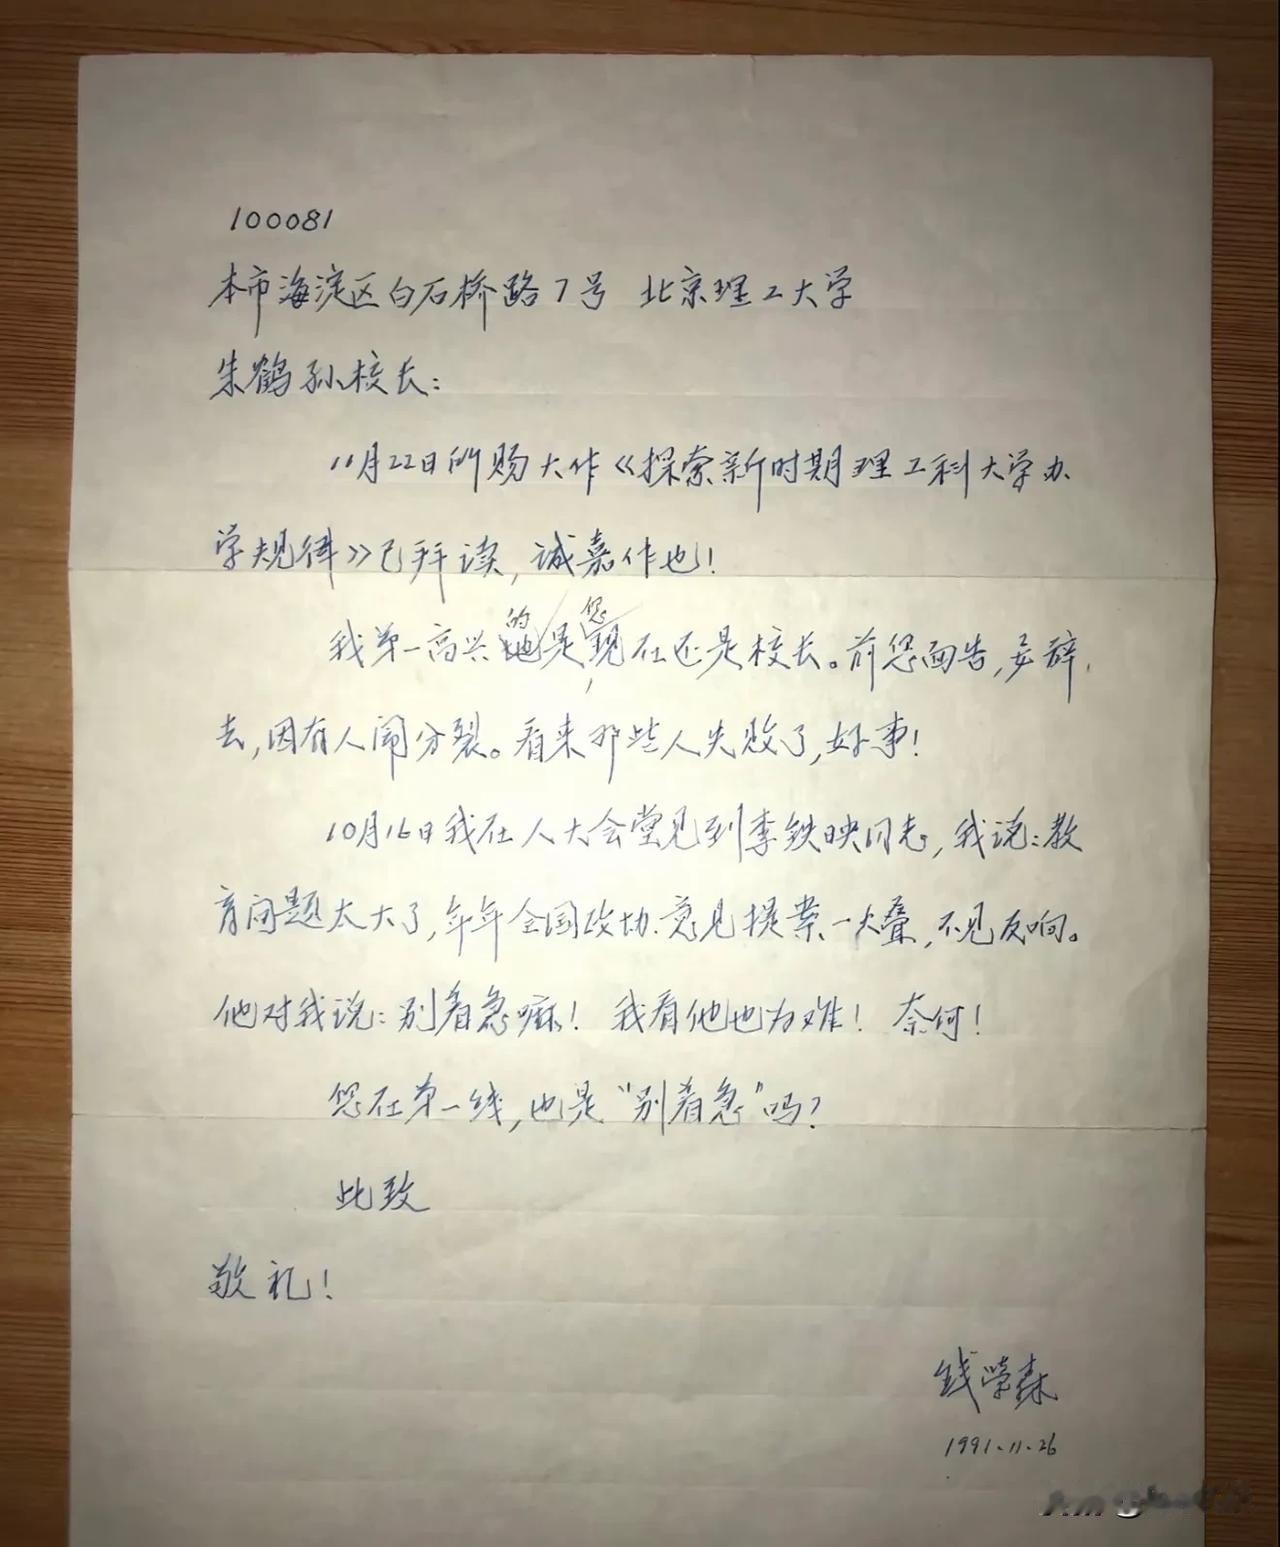 100081
本市海淀区白石桥路7号 北京理工大学
朱鹤孙校长：
11月22日所赐大作《探索新时期理工科大学办
学规律》已拜读，诚嘉作也！
我第一高兴的是，您现在还是校长。前您面告，要辞
去，因有人闹分裂。看来那些人失败了，好事！
10月16日我在人大会堂见到李铁映同志，我说：教
育问题太大了，年年全国政协意见提案一大叠，不见反响。
他对我说：别着急嘛！我看他也为难！奈何！
您在第一线，也是“别着急”吗？
此致
敬礼！
钱学森
1991.11.26